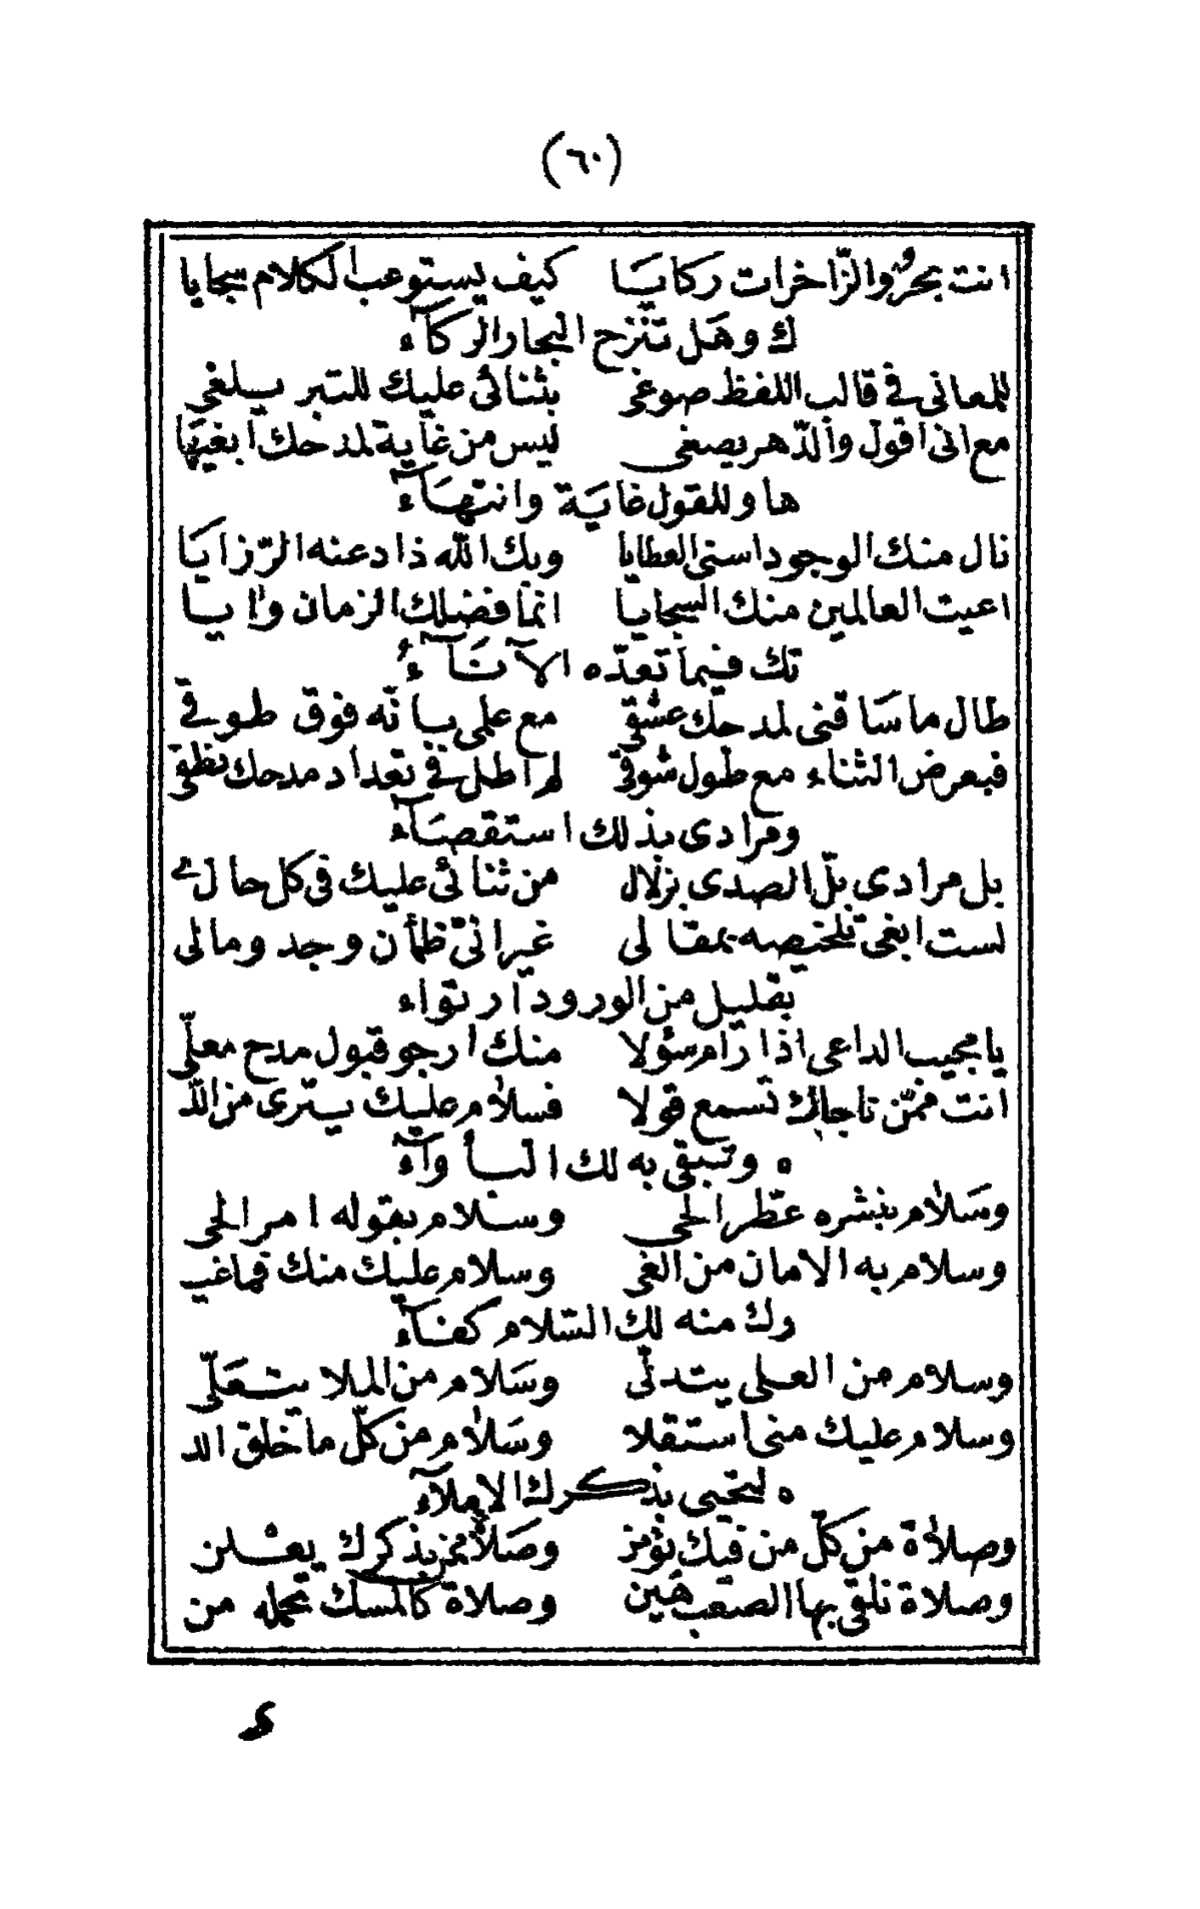 (٦٠)
انت بحرٌ والزّاخرات ركايَا كيف يستوعب الكلام سجايا
ك وهَل تنْزح البحار الركآء
للمعانى فى قالب اللفظ صوغى بثنائى عليك للتبر يلغى
مع انى اقول والدّهر يصغى ليس من غاية لمدحك ابغيها
ها وللقول غايَة وانتهَآء
نال منك الوجود اسنى العطايا وبك الله ذاد عنه الرّزايَا
اعيت العالمين منك السجايا انمّا فضلك الزمان وايا
تك فيما تعدّه الآنَآءُ
طال ما سَاقنى لمدحك عشقى مع علمى بانّه فوق طوقى
فبعرض الثناء مع طول شوقى لم اطل فى تعداد مدحك نطقى
ومرادى بذلك استقصَآء
بل مرادى بلّ الصدى بزلال من ثنائى عليك فى كل حال
لست ابغى تلخيصه بمقالى غير انّى ظمأن وجد ومالى
بقليل من الورود ارتواء
يا مجيب الداعى اذا رَام سؤلا منك ارجو قبول مدح معلّى
انت ممّن ناجاك تسمع قولا فسلام عليك يترى من اللّه
ه وتبقى به لك البأوآء
وسَلام بنشره عطّر الحى وسلام بقوله امر الحى
وسلام به الامان من الغى وسلام عليك منك فما غيـ
رك منه لك السّلام كفآء
وسلام من العلى يتدلّى وسَلام من الملا يتعَلّى
وسلام عليك منى استقلا وسَلام من كلّ ما خلق اللـ
ه لتحيى بذكرك الاملآء
وصلاة من كلّ من فيك يؤمن وصَلاة ممن بذكرك يعلن
وصلاة نلقى بها الصّعب هَين وصلاة كالمسك تحمله من